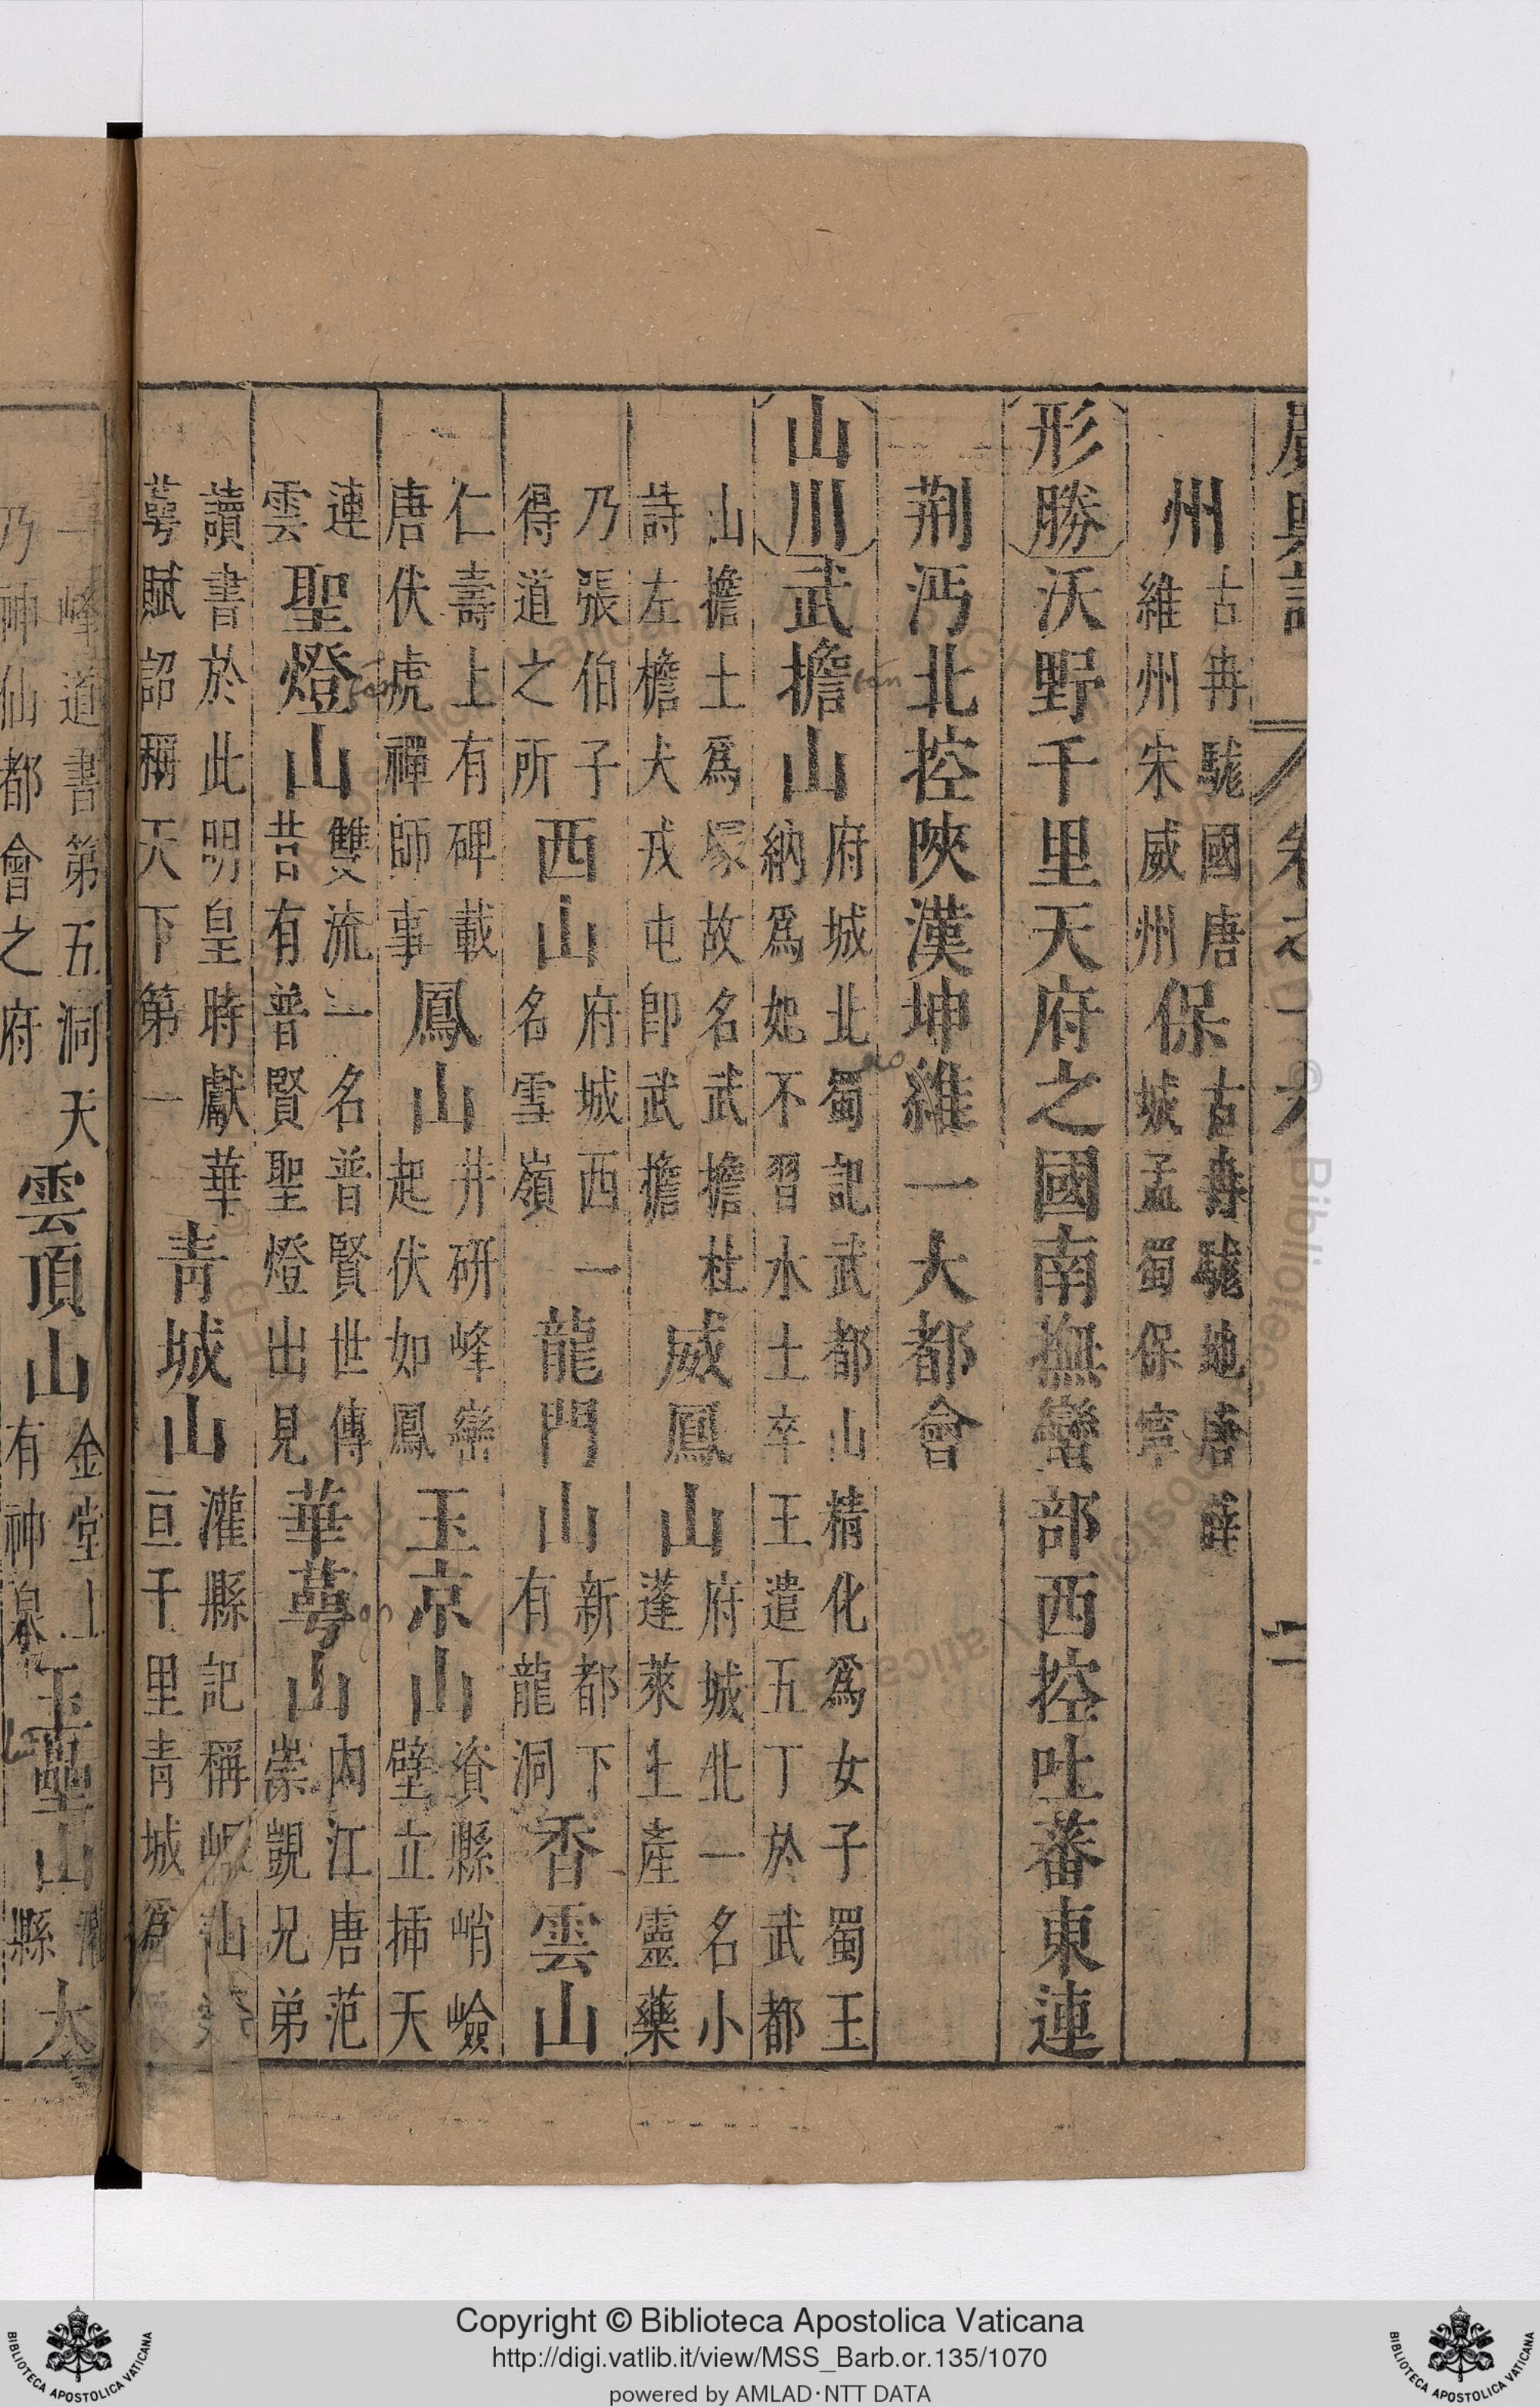 廣輿記 卷之十六 二
州古冉駹國唐維州宋威州保古冉駹地唐薛城孟蜀保寧
形勝沃野千里天府之國南撫蠻部西控吐蕃東連
荊沔北控陝漢坤維一大都會
山川武擔山府城北蜀記武都山精化爲女子蜀王納爲妃不習水土卒王遣五丁於武都
山擔土爲塚故名武擔杜詩左檐犬戎屯卽武擔威鳳山府城北一名小蓬萊土產靈藥
乃張伯子得道之所西山府城西一名雪嶺龍門山新都下有龍洞香雲山
仁壽上有碑載唐伏虎禪師事鳳山井研峰巒起伏如鳳玉京山資縣峭嶮壁立揷天
連雲聖燈山雙流一名普賢世傳昔有普賢聖燈出見華蕚山內江唐范崇覬兄弟
讀書於此明皇時獻華蕚賦詔稱天下第一青城山灌縣記稱岷山連亘千里青城爲
一峰道書第五洞天乃神仙都會之府雲頂山金堂上有神泉玉壘山灌縣大
Copyright © Biblioteca Apostolica Vaticana
http://digi.vatlib.it/view/MSS_Barb.or.135/1070
powered by AMLAD·NTT DATA
BIBLIOTECA APOSTOLICA VATICANA
BIBLIOTECA APOSTOLICA VATICANA